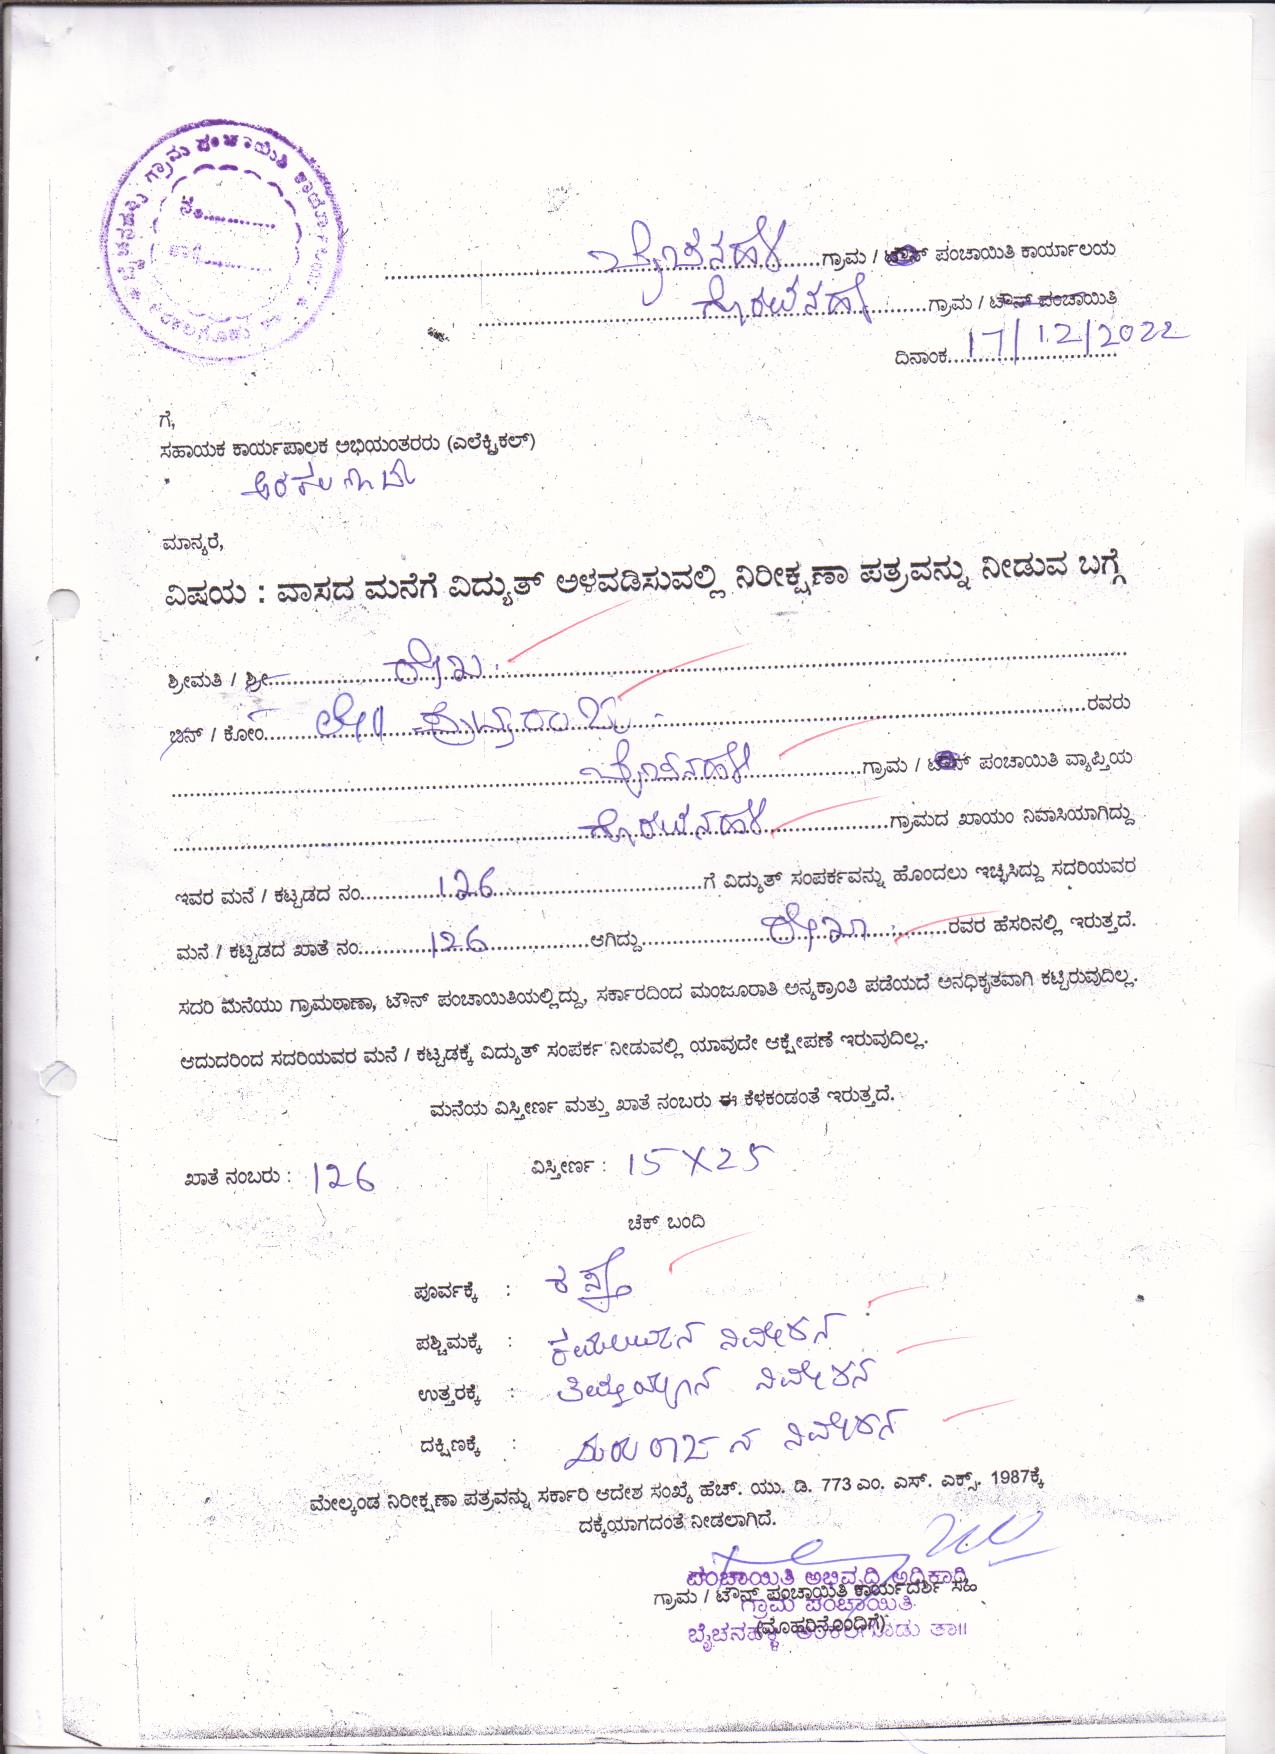 ಬೈಚನಹಳ್ಳಿ ಗ್ರಾಮ ಪಂಚಾಯಿತಿ ಕಾರ್ಯಾಲಯ
ನಂ...........
ಬೈಚನಹಳ್ಳಿ ಗ್ರಾಮ / ಟೌನ್ ಪಂಚಾಯಿತಿ ಕಾರ್ಯಾಲಯ
ಗ್ರಾಮ / ಟೌನ್ ಪಂಚಾಯಿತಿ
ದಿನಾಂಕ 17/12/2022
ಗೆ,
ಸಹಾಯಕ ಕಾರ್ಯಪಾಲಕ ಅಭಿಯಂತರರು (ಎಲೆಕ್ಟ್ರಿಕಲ್)
ಮಾನ್ಯರೆ,
ವಿಷಯ : ವಾಸದ ಮನೆಗೆ ವಿದ್ಯುತ್ ಅಳವಡಿಸುವಲ್ಲಿ ನಿರೀಕ್ಷಣಾ ಪತ್ರವನ್ನು ನೀಡುವ ಬಗ್ಗೆ
ಶ್ರೀಮತಿ / ಶ್ರೀ ರೇಖಾ
ಬಿನ್ / ಕೋಂ ರವರು
ಬೈಚನಹಳ್ಳಿ ಗ್ರಾಮ / ಟೌನ್ ಪಂಚಾಯಿತಿ ವ್ಯಾಪ್ತಿಯ
ಗ್ರಾಮದ ಖಾಯಂ ನಿವಾಸಿಯಾಗಿದ್ದು
ಇವರ ಮನೆ / ಕಟ್ಟಡದ ನಂ 126 ಗೆ ವಿದ್ಯುತ್ ಸಂಪರ್ಕವನ್ನು ಹೊಂದಲು ಇಚ್ಛಿಸಿದ್ದು ಸದರಿಯವರ
ಮನೆ / ಕಟ್ಟಡದ ಖಾತೆ ನಂ 126 ಆಗಿದ್ದು ರೇಖಾ ರವರ ಹೆಸರಿನಲ್ಲಿ ಇರುತ್ತದೆ.
ಸದರಿ ಮನೆಯು ಗ್ರಾಮಠಾಣಾ, ಟೌನ್ ಪಂಚಾಯಿತಿಯಲ್ಲಿದ್ದು, ಸರ್ಕಾರದಿಂದ ಮಂಜೂರಾತಿ ಅನ್ಯಕ್ರಾಂತಿ ಪಡೆಯದೆ ಅನಧಿಕೃತವಾಗಿ ಕಟ್ಟಿರುವುದಿಲ್ಲ.
ಆದುದರಿಂದ ಸದರಿಯವರ ಮನೆ / ಕಟ್ಟಡಕ್ಕೆ ವಿದ್ಯುತ್ ಸಂಪರ್ಕ ನೀಡುವಲ್ಲಿ ಯಾವುದೇ ಆಕ್ಷೇಪಣೆ ಇರುವುದಿಲ್ಲ.
ಮನೆಯ ವಿಸ್ತೀರ್ಣ ಮತ್ತು ಖಾತೆ ನಂಬರು ಈ ಕೆಳಕಂಡಂತೆ ಇರುತ್ತದೆ.
ಖಾತೆ ನಂಬರು : 126 ವಿಸ್ತೀರ್ಣ : 15 X 25
ಚೆಕ್ ಬಂದಿ
ಪೂರ್ವಕ್ಕೆ : ರಸ್ತೆ
ಪಶ್ಚಿಮಕ್ಕೆ : ನಿವೇಶನ
ಉತ್ತರಕ್ಕೆ : ನಿವೇಶನ
ದಕ್ಷಿಣಕ್ಕೆ : ನಿವೇಶನ
ಮೇಲ್ಕಂಡ ನಿರೀಕ್ಷಣಾ ಪತ್ರವನ್ನು ಸರ್ಕಾರಿ ಆದೇಶ ಸಂಖ್ಯೆ ಹೆಚ್. ಯು. ಡಿ. 773 ಎಂ. ಎಸ್. ಎಕ್ಸ್. 1987ಕ್ಕೆ
ದಕ್ಕೆಯಾಗದಂತೆ ನೀಡಲಾಗಿದೆ.
ಪಂಚಾಯಿತಿ ಅಭಿವೃದ್ಧಿ ಅಧಿಕಾರಿ
ಗ್ರಾಮ / ಟೌನ್ ಪಂಚಾಯಿತಿ ಕಾರ್ಯದರ್ಶಿ ಸಹಿ
ಗ್ರಾಮ ಪಂಚಾಯಿತಿ
(ಮೊಹರಿನೊಂದಿಗೆ)
ಬೈಚನಹಳ್ಳಿ ಅರಕಲಗೂಡು ತಾ॥